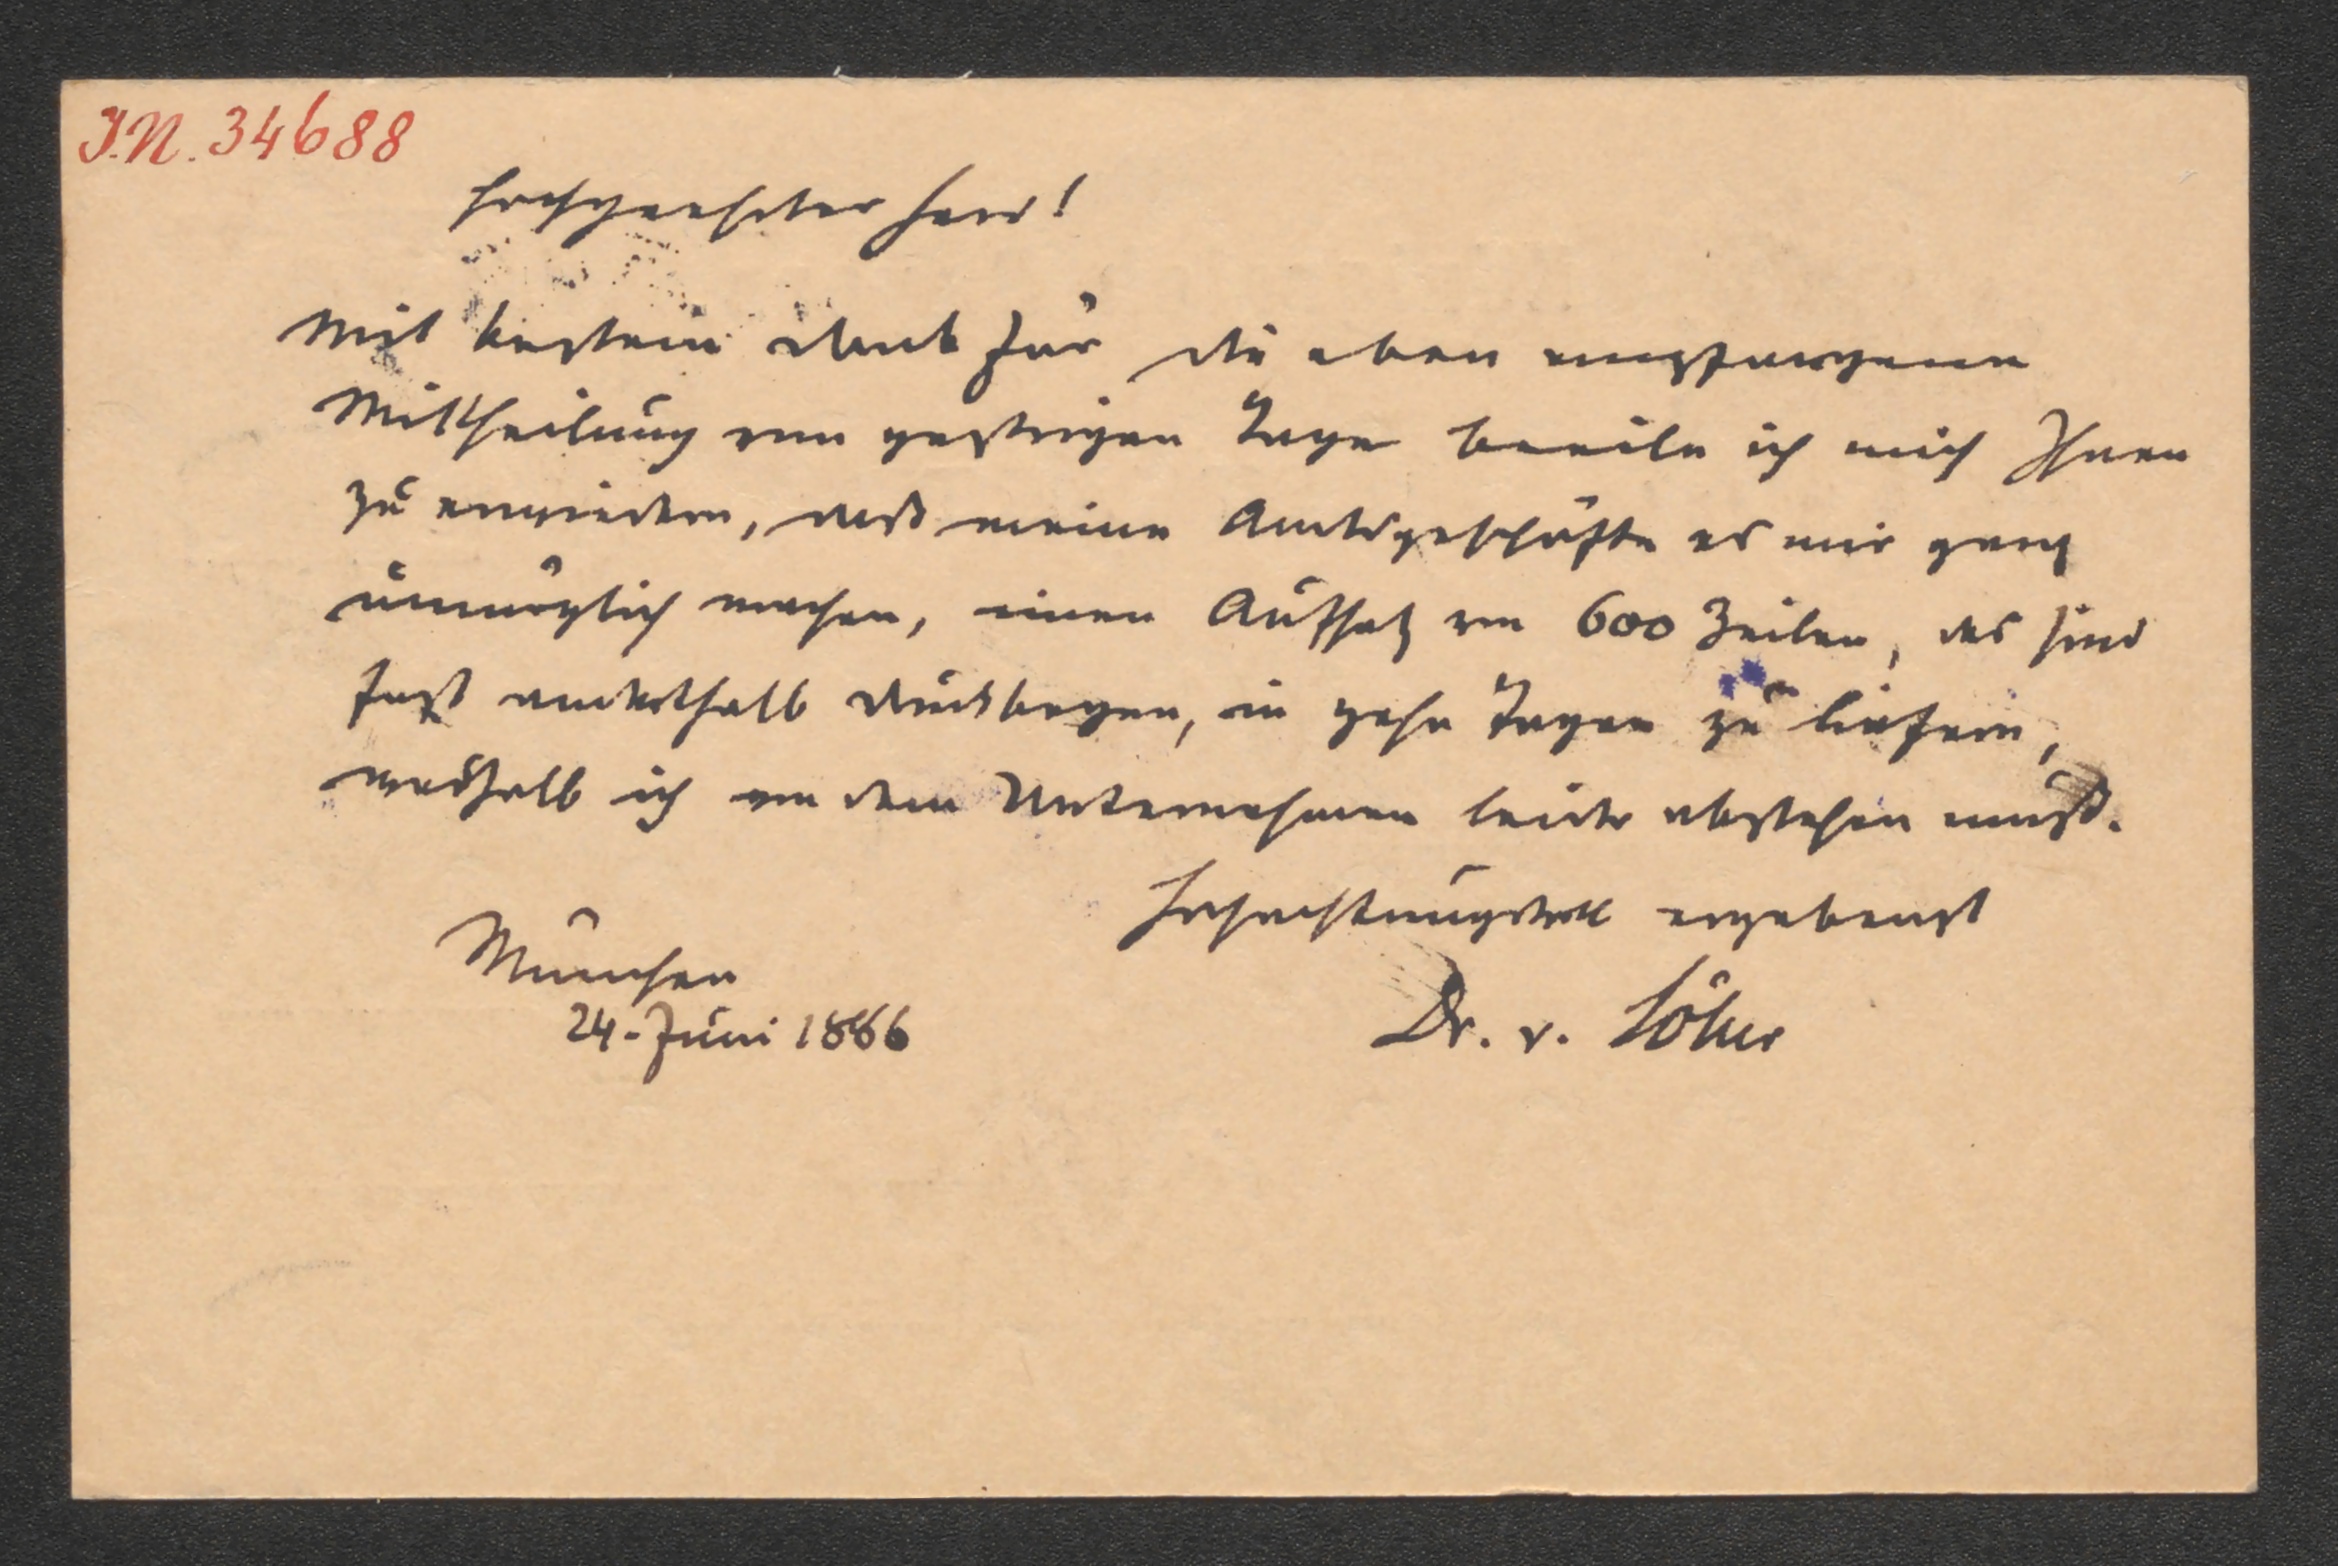 J.N. 34688
Hochgeehrter Herr!
Mit bestem Dank für die eben empfangene
Mittheilung vom gestrigen Tage beeile ich mich Ihnen
zu erwiedern, daß meine Amtsgeschäfte es mir ganz
unmöglich machen, einen Aufsatz von 600 Zeilen, das sind
fast anderthalb Druckbogen, in zehn Tagen zu liefern,
weßhalb ich von dem Unternehmen leider abstehen muß.
Hochachtungsvoll ergebenst
München
24. Juni 1886
Dr. v. Löher